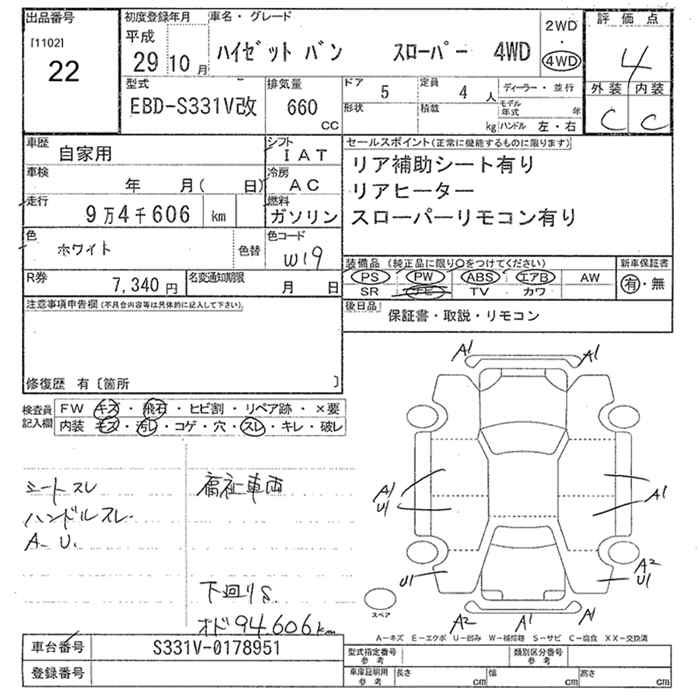 出品番号
[1102]
22
初度登録年月
平成
29 10 月
車名・グレード
ハイゼット バン スローパー 4WD
2WD
・
4WD
評価点
4
外装 内装
C C
型式
EBD-S331V改
排気量
660
CC
ドア 5
形状
定員 4 人
積載 kg
ディーラー・並行
モデル年式 年
ハンドル 左・右
車歴 自家用
シフト IAT
車検 年 月( 日)
冷房 AC
走行 9万4千606 km
燃料 ガソリン
色 ホワイト 色替
色コード W19
R券 7,340円
名変通知期限 月 日
セールスポイント(正常に機能するものに限ります)
リア補助シート有り
リアヒーター
スローパーリモコン有り
装備品(純正品に限り○をつけてください)
新車保証書
PS PW ABS エアB AW
SR ナビ TV カワ
有・無
後日品 保証書・取説・リモコン
注意事項申告欄(不具合内容等は具体的に記入して下さい)
修復歴 有[箇所 ]
検査員記入欄
FW キズ・飛石・ヒビ割・リペア跡・×要
内装 キズ・汚レ・コゲ・穴・スレ・キレ・破レ
シートスレ
ハンドルスレ
A.U.
福祉車両
下回りS
オド94,606km
A1 A1
A1
U1
A1
U1
A2
U1
A2 A1 A1
スペア
A-キズ E-エクボ U-凹み W-補修跡 S-サビ C-腐食 XX-交換済
車台番号 S331V-0178951
登録番号
型式指定番号
参考
類別区分番号
参考
車庫証明用
参考
長さ cm 幅 cm 高さ cm